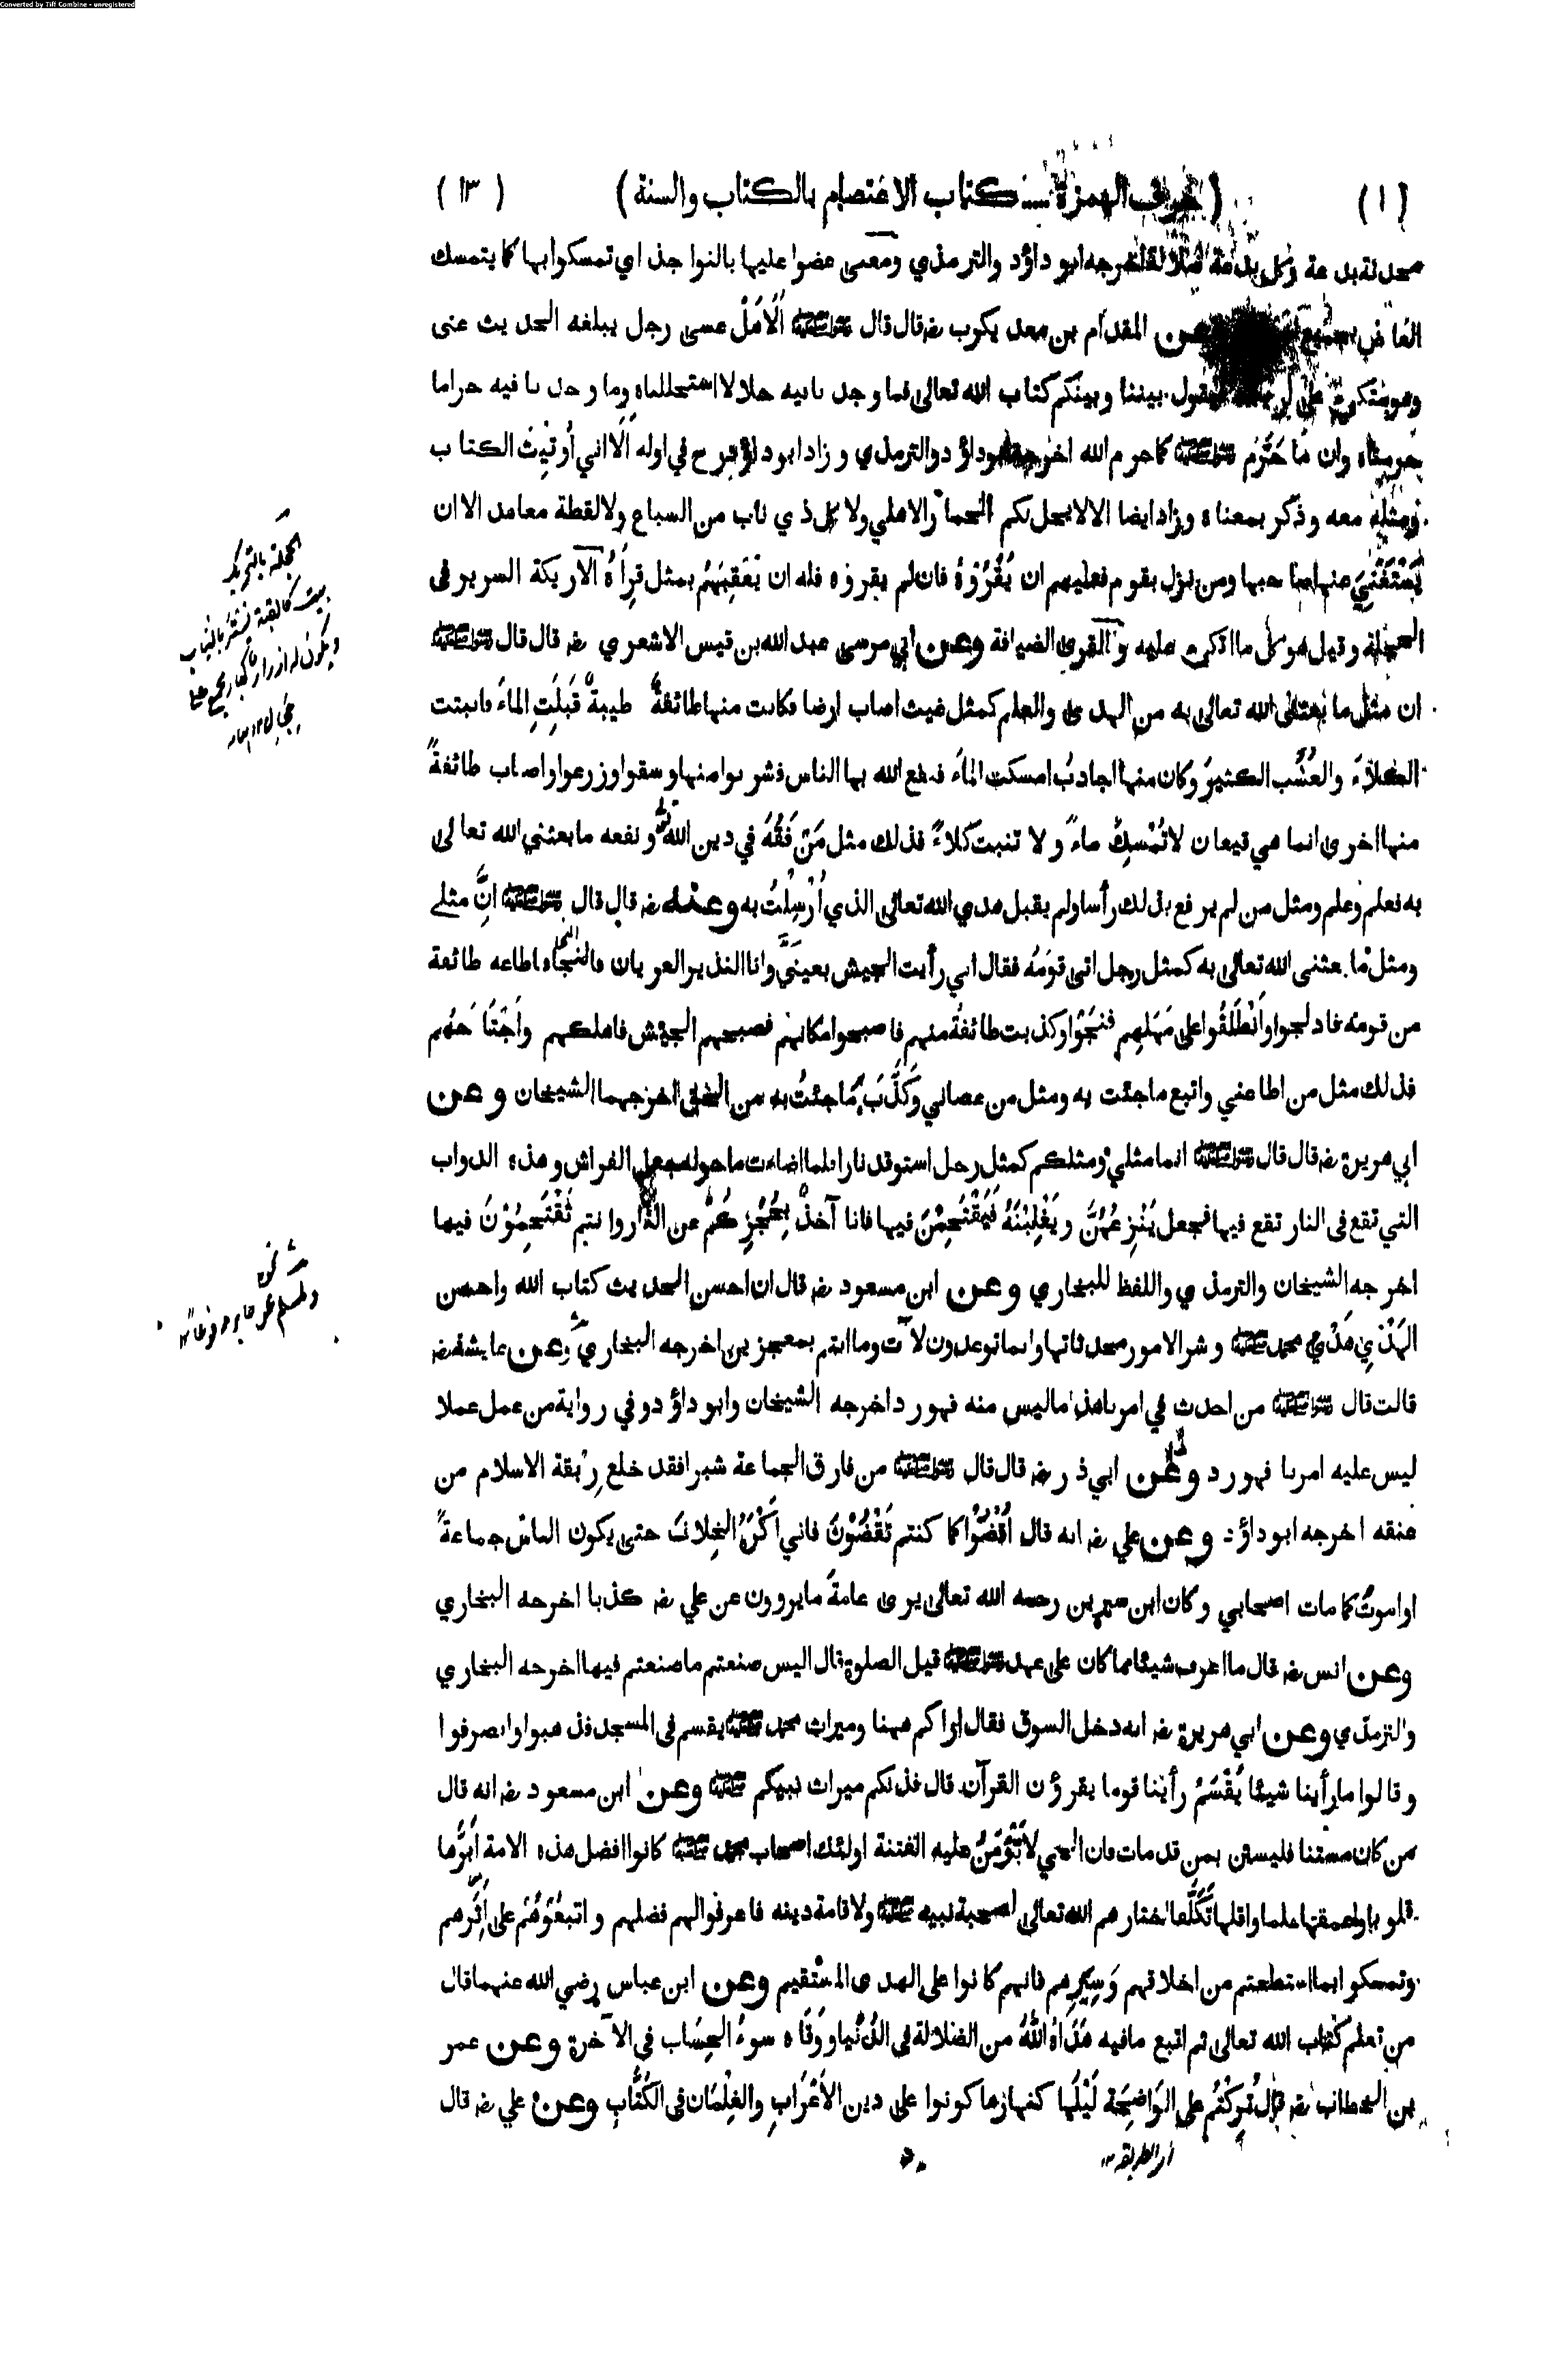 Converted by Tiff Combine - unregistered
(١) (حرف الهمزة ــ كتاب الاعتصام بالكتاب والسنة) (١٣)
محدثة بدعة وكل بدعة ضلالة اخرجه ابو داؤد والترمذي ومعنى عضوا عليها بالنواجذ اي تمسكوا بها كما يتمسك
العاض بجميع وعن المقدام بن معد يكرب رضـ قال قال ﷺ اَلَا هَلْ عسى رجل يبلغه الحديث عنى
وهو متكئ على فيقول بيننا وبينكم كتاب الله تعالى فما وجدنا فيه حلالا استحللناه وما وجدنا فيه حراما
حرمناه وان ما حَرَّم ﷺ كما حرم الله اخرجه ابوداؤد والترمذي وزاد ابو داؤد رح في اوله اَلَا اني أُوتِيْتُ الكتاب
ومثله معه وذكر بمعناه وزاد ايضا الا لا يحل لكم الحمار الاهلي ولا كل ذي ناب من السباع ولا لقطة معاهد الا ان
يَسْتَغْنِيَ عنها صاحبها ومن نزل بقوم فعليهم ان يُقْرُوْهُ فان لم يقروه فله ان يَعْقِبَهُم بمثل قِرَاهُ الاريكة السرير فى
الحجلة وقيل هو كل ما اتكئ عليه والقرى الضيافة وعن ابي موسى عبد الله بن قيس الاشعري رضـ قال قال ﷺ
ان مثل ما بعثنى الله تعالى به من الهدى والعلم كمثل غيث اصاب ارضا فكانت منها طائفةٌ طيبةٌ قَبِلَتِ الماءَ فانبتت
الكَلَأَ والعُشُب الكثيرَ وكان منها اجادبُ امسكت الماءَ فنفع الله بها الناس فشربوا منها وسقوا وزرعوا واصاب طائفةً
منها اخرى انما هي قيعان لا تُمْسِكُ ماءً ولا تنبت كلاءً فذلك مثل مَنْ فَقُهَ في دين الله ونفعه ما بعثني الله تعالى
به فعلم وعلم ومثل من لم يرفع بذلك رأسا ولم يقبل هدي الله تعالى الذي أُرْسِلْتُ به وعنه رضـ قال قال ﷺ اِنَّ مثلے
ومثل ما بعثنى الله تعالى به كمثل رجل اتى قومَه فقال انى رأيت الجيش بعينَيَّ وانا النذير العريان فالنجاء فاطاعه طائفة
من قومه فادلجوا وانْطَلَقُوا على مَهَلِهِم فنَجَوْا وكذبت طائفةٌ منهم فاصبحوا مكانهم فصبحهم الجيْش فاهلكهم واجْتَاحَهُم
فذلك مثل من اطاعني واتبع ما جئت به ومثل من عصاني وكَذَّبَ بما جئتُ به من الحق اخرجهما الشيخان وعن
ابي هريرة رضـ قال قال ﷺ انما مثلي ومثلكم كمثل رجل استوقد نارا فلما اضاءت ما حوله جعل الفراش وهذه الدواب
التي تقع فى النار تقع فيها فجعل يَنْزِعُهُنَّ ويَغْلِبْنَهُ فَيَقْتَحِمْنَ فيها فانا آخذٌ بِحُجَزِكُمْ عن النار وانتم تَقْتَحِمُوْنَ فيها
اخرجه الشيخان والترمذي واللفظ للبخاري وعن ابن مسعود رضـ قال ان احسن الحديث كتاب الله واحسن
الهَدْيِ هَدْيُ محمد ﷺ وشر الامور محدثاتها وانما توعدون لآت وما انتم بمعجزين اخرجه البخاري وعن عايشة رضـ
قالت قال ﷺ من احدث في امرنا هذا ما ليس منه فهو رد اخرجه الشيخان وابو داؤد وفي رواية من عمل عملا
ليس عليه امرنا فهو رد وعن ابي ذر رضـ قال قال ﷺ من فارق الجماعة شبرا فقد خلع رِبقة الاسلام من
عنقه اخرجه ابو داؤد وعن علي رضـ انه قال اُقْضُوْا كما كنتم تَقْضُوْنَ فاني اَكْرَهُ الخِلافَ حتى يكون الناس جماعةً
او اموتَ كما مات اصحابي وكان ابن سيرين رحمه الله تعالى يرى عامةَ ما يروون عن علي رضـ كذبا اخرجه البخاري
وعن انس رضـ قال ما اعرف شيئا مما كان على عهد ﷺ قيل الصلوة قال اليس صنعتم ما صنعتم فيها اخرجه البخاري
والترمذي وعن ابي هريرة رضـ انه دخل السوق فقال اراكم ههنا وميراث محمد ﷺ يقسم فى المسجد فذهبوا وانصرفوا
وقالوا ما رأينا شيئا يُقْسَمُ رأينا قوما يقرؤن القرآن قال فذلكم ميراث نبيكم ﷺ وعن ابن مسعود رضـ انه قال
من كان مستنا فليستن بمن قد مات فان الحي لا تُؤْمَنُ عليه الفتنة اولئك اصحاب محمد ﷺ كانوا افضل هذه الامة اَبَرُّها
قلوبا واعمقها علما واقلها تَكَلُّفا اختارهم الله تعالى لصحبة نبيه ﷺ ولاقامة دينه فاعرفوا لهم فضلهم واتبعُوْهُمْ على اِثْرِهم
وتمسكوا بما استطعتم من اخلاقهم وَسِيَرِهِم فانهم كانوا على الهدى المسْتقيم وعن ابن عباس رضي الله عنهما قال
من تعلم كتاب الله تعالى ثم اتبع ما فيه هَدَاهُ اللهُ من الضلالة فى الدُّنْيا ووَقَاه سوءَ الحِسَاب في الآخرة وعن عمر
بن الخطاب رضـ قال تُرِكْتُمْ على الوَاضِحَة لَيْلُها كنهارها كونوا على دين الأَعْرَابِ والغِلْمَان فى الكُتَّابِ وعن علي رضـ قال
اى الطريقة ١٢
الحجلة بالتحريك
بيت كالقبة تستر بالثياب
ويكون له ازرار كبار